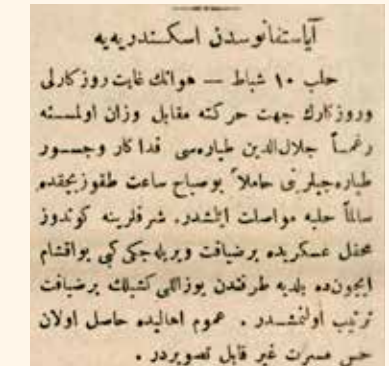 آیاستفانوسدن اسكندریه‌یه
حلب ١٠ شباط — هوانك غایت روزكارلی
وروزكارك جهت حركته مقابل وزان اولمسنه
رغماً جلال‌الدین طیاره‌سی فداكار وجسور
طیاره‌جیلرینی حاملاً بوصباح ساعت طقوزبچقده
سالماً حلبه مواصلت ایلشدر. شرفلرینه كوندوز
محفل عسكریده برضیافت ویریله‌جكی كبی بواقشام
ایچون‌ده بلدیه طرفندن یوزاللی كشیلك برضیافت
ترتیب اولنمشدر . عموم اهالیده حاصل اولان
حس مسرت غیر قابل تصویردر .